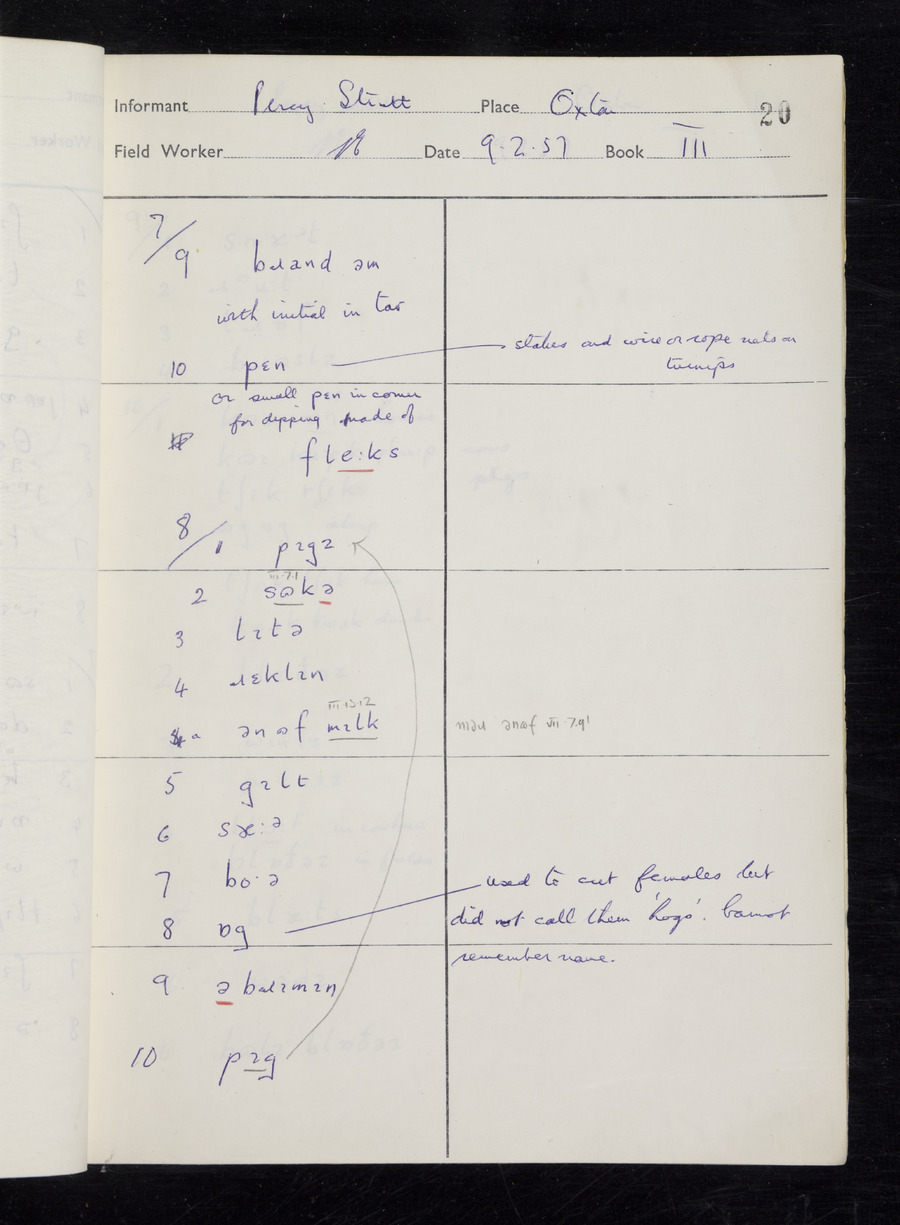 Informant Percy Strutt Place Oxton 20
Field Worker Date 9.2.57 Book III
7/9 bɹand əm
with initial in tar
10 pɛn stakes and wire or rope nets on
turnips
or small pen in corner
for dipping made of
fle:ks
8/1 pɪgz
III.7.1
2 sɷkə
3 lɪtə
4 ɹɛklɪn
III.13.12
a ənɷf mɪlk ənɷf VII.7.9
5 gɪlt
6 sæ:ə
7 bo·ə used to cut females but
did not call them 'hogs'. Cannot
8 ɒg
remember name.
9 ə bɹɪmɪn
10 pɪg